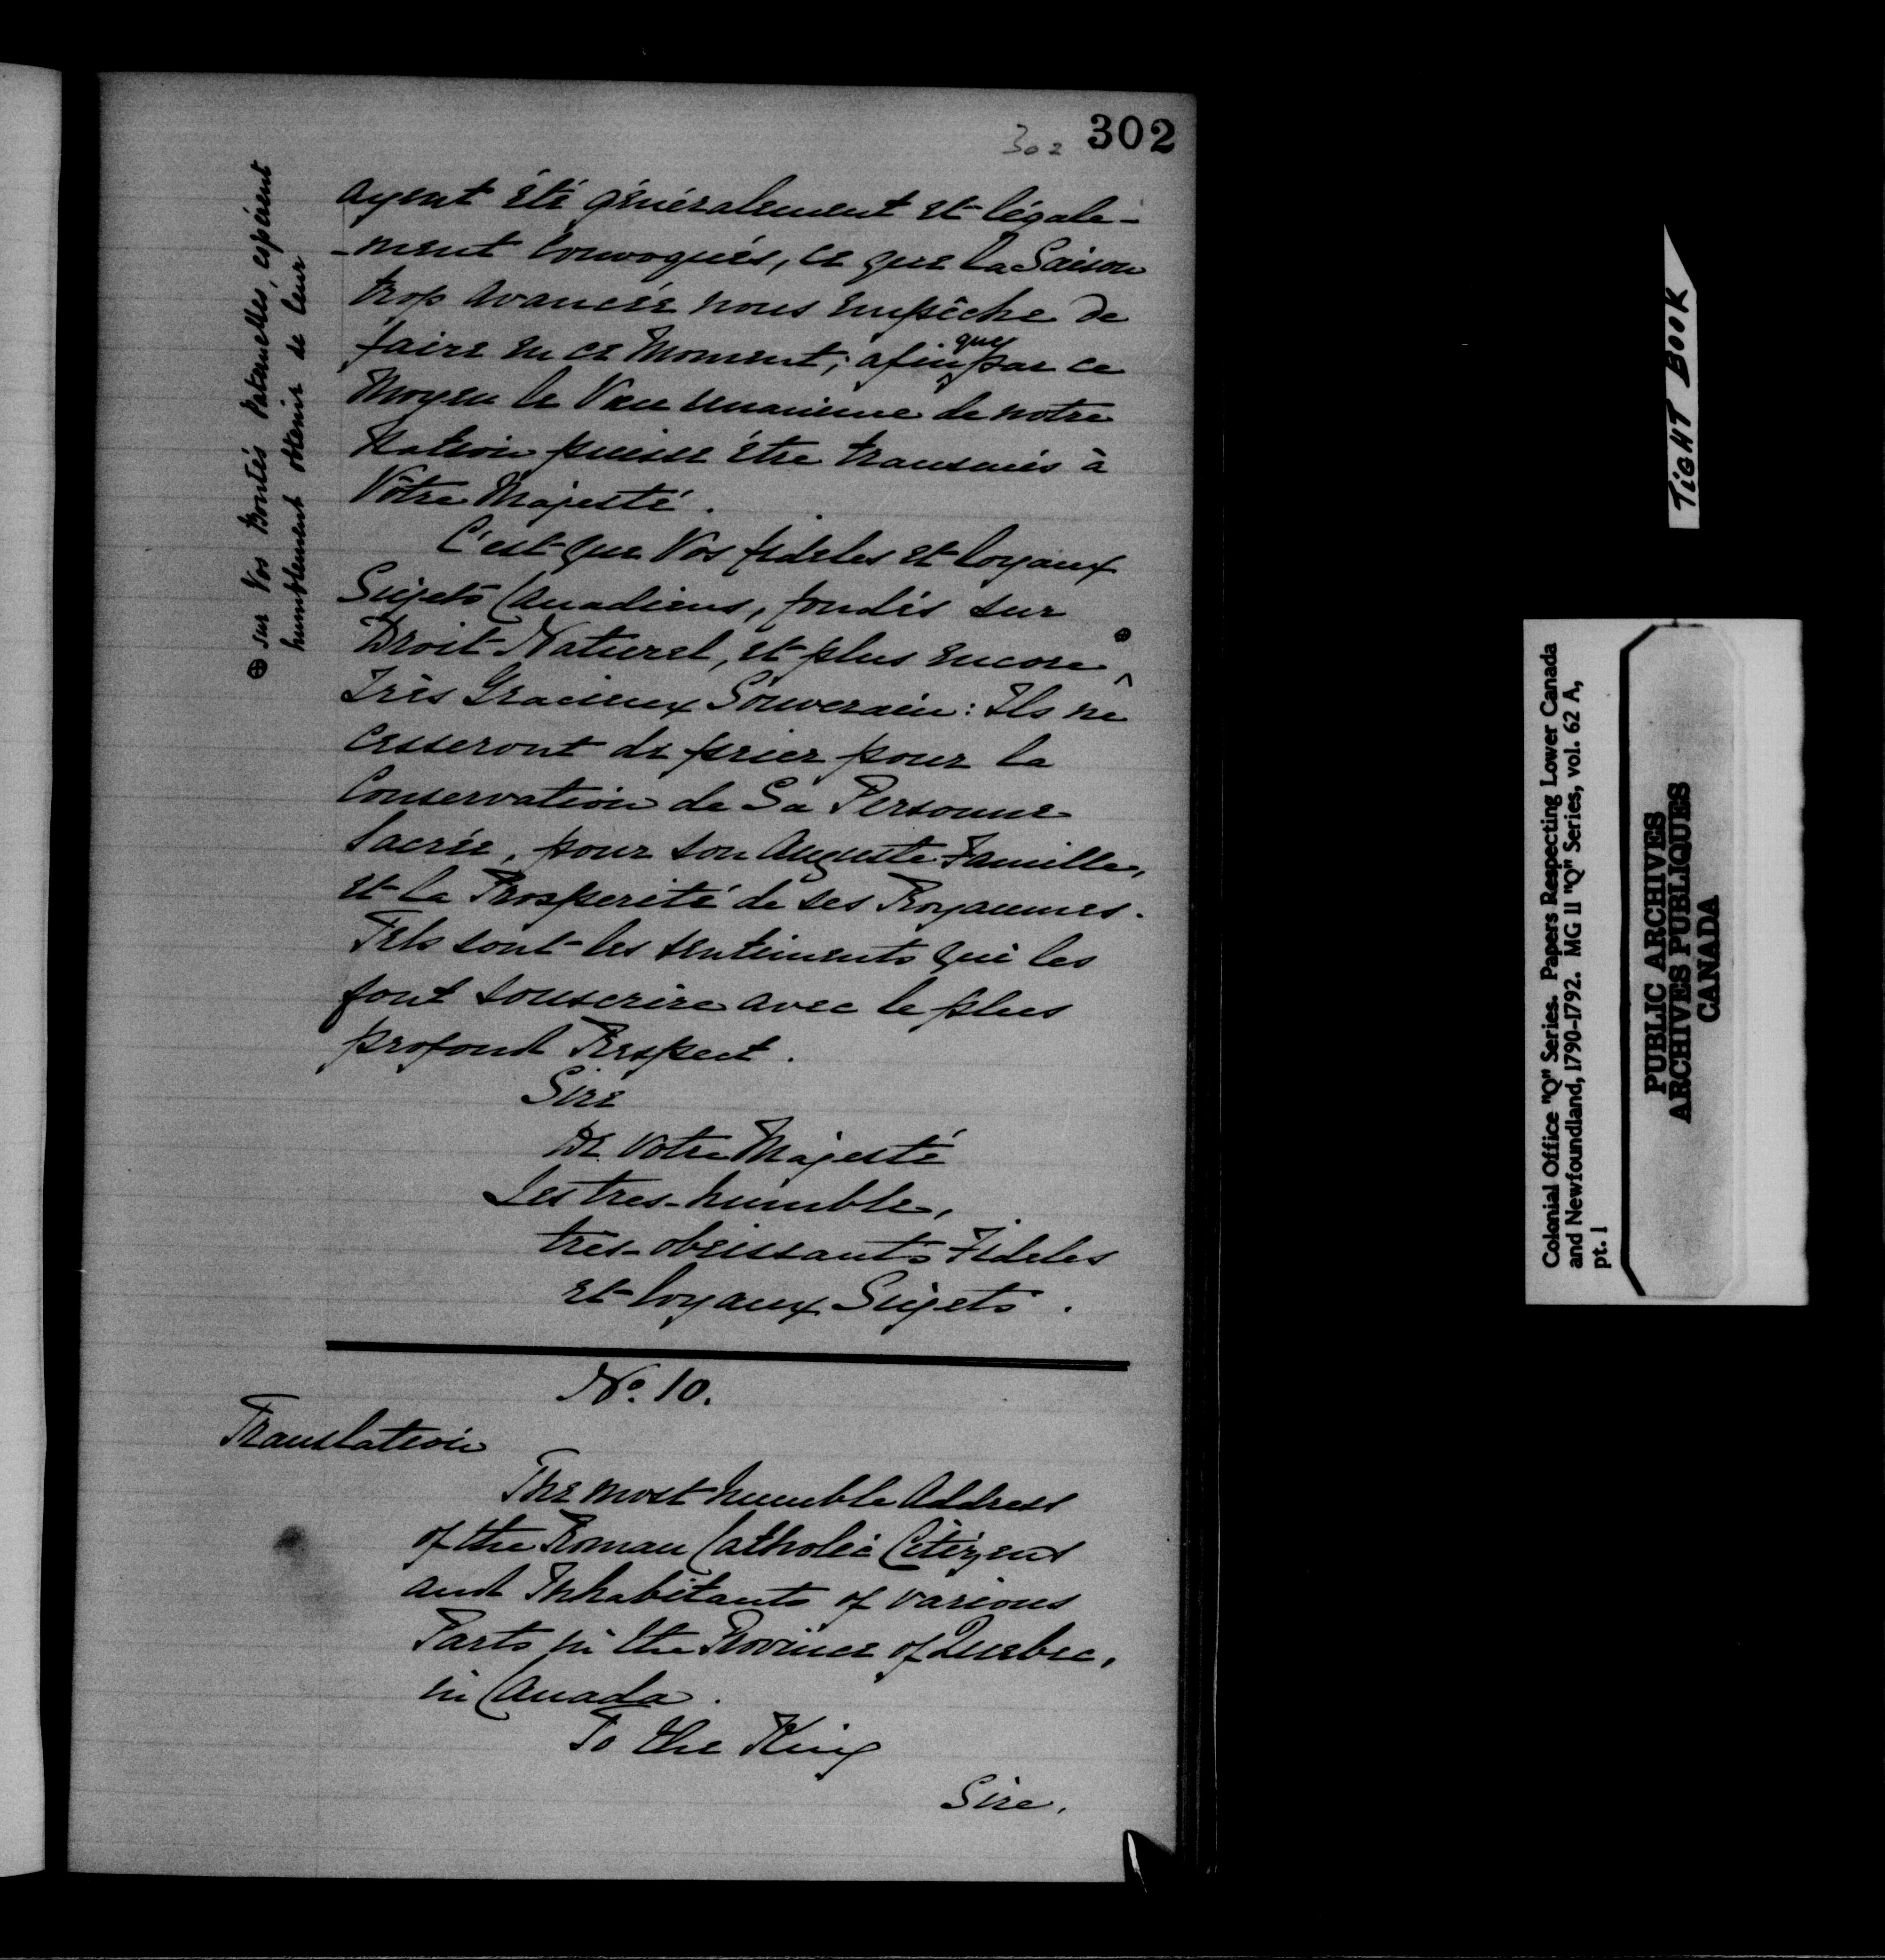 302 302
ayent été généralement et légale-
-ment convoqués, ce que la Saison
trop avancée nous empêche de
faire en ce Moment; afin que par ce
Moyen le Vœu unanime de notre
Nation puisse être transmis à
Vôtre Majesté.
C'est que Vos fideles et loyaux
Sujets Canadiens, fondés sur
Droit Naturel, et plus encore ⊕
Très Gracieux Souverain: Ils ne
cesseront de prier pour la
Conservation de Sa Personne
Sacrée, pour son Auguste Famille,
et la Prosperité de ses Royaumes.
Tels sont les sentiments qui les
font souscrire avec le plus
profond Respect.
Sire
De Votre Majesté
Les tres-humble,
très-obeissants Fideles
et loyaux Sujets.
⊕ sur Vos Bontés Paternelles, espèrent
humblement obtenir de leur
No. 10.
Translation
The most humble Address
of the Roman Catholic Citizens
and Inhabitants of various
Parts in the Province of Quebec,
in Canada.
To the King
Sire.
TIGHT BOOK
Colonial Office "Q" Series. Papers Respecting Lower Canada
and Newfoundland, 1790-1792. MG 11 "Q" Series, vol. 62 A,
pt. 1
PUBLIC ARCHIVES
ARCHIVES PUBLIQUES
CANADA